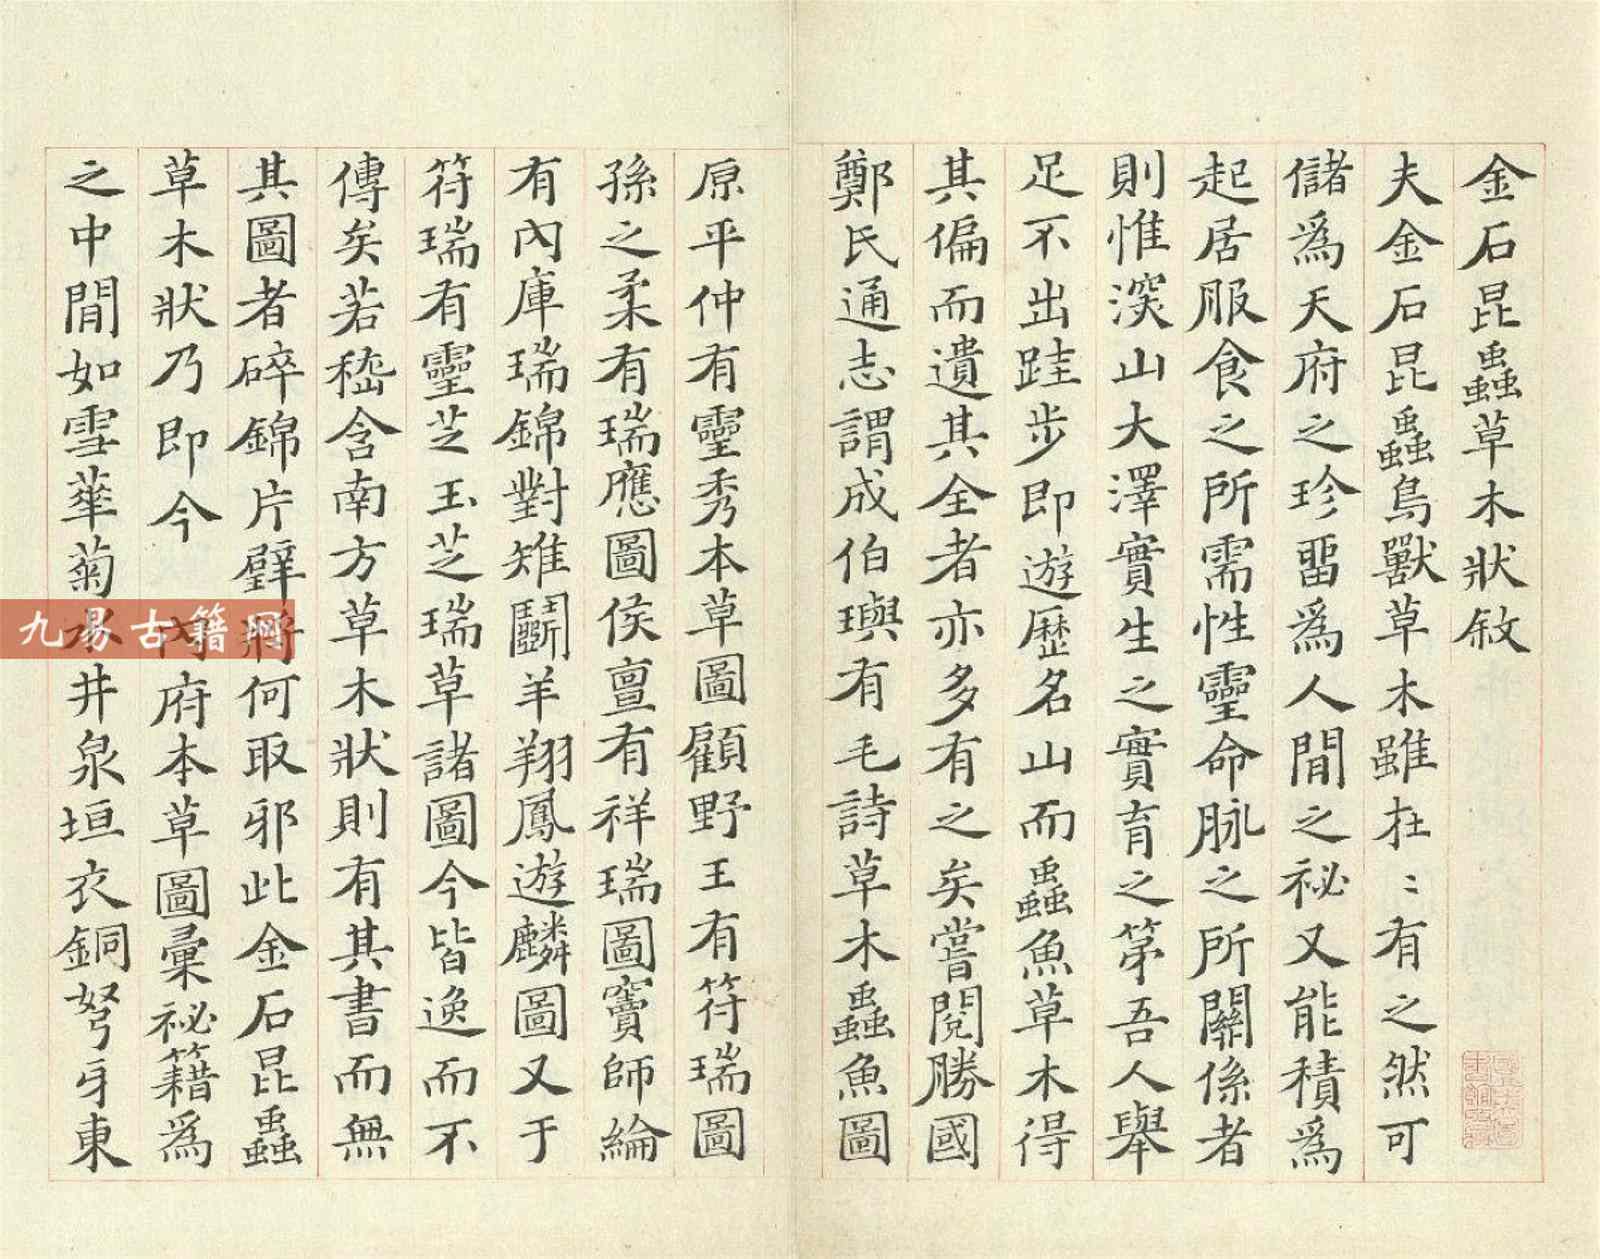 金石昆蟲草木狀敘
夫金石昆蟲鳥獸草木雖在〻有之然可
儲為天府之珍畱為人間之祕又能積為
起居服食之所需性靈命脉之所關係者
則惟深山大澤實生之實育之第吾人舉
足不出跬步即遊歷名山而蟲魚草木得
其偏而遺其全者亦多有之矣嘗閱勝國
鄭氏通志謂成伯璵有毛詩草木蟲魚圖
原平仲有靈秀本草圖顧野王有符瑞圖
孫之柔有瑞應圖侯亶有祥瑞圖竇師綸
有內庫瑞錦對雉鬭羊翔鳳遊麟圖又于
符瑞有靈芝玉芝瑞草諸圖今皆逸而不
傳矣若嵇含南方草木狀則有其書而無
其圖者碎錦片璧將何取邪此金石昆蟲
草木狀乃即今 內府本草圖彙祕籍為
之中間如雪華菊水井泉垣衣銅弩牙東
九易古籍网